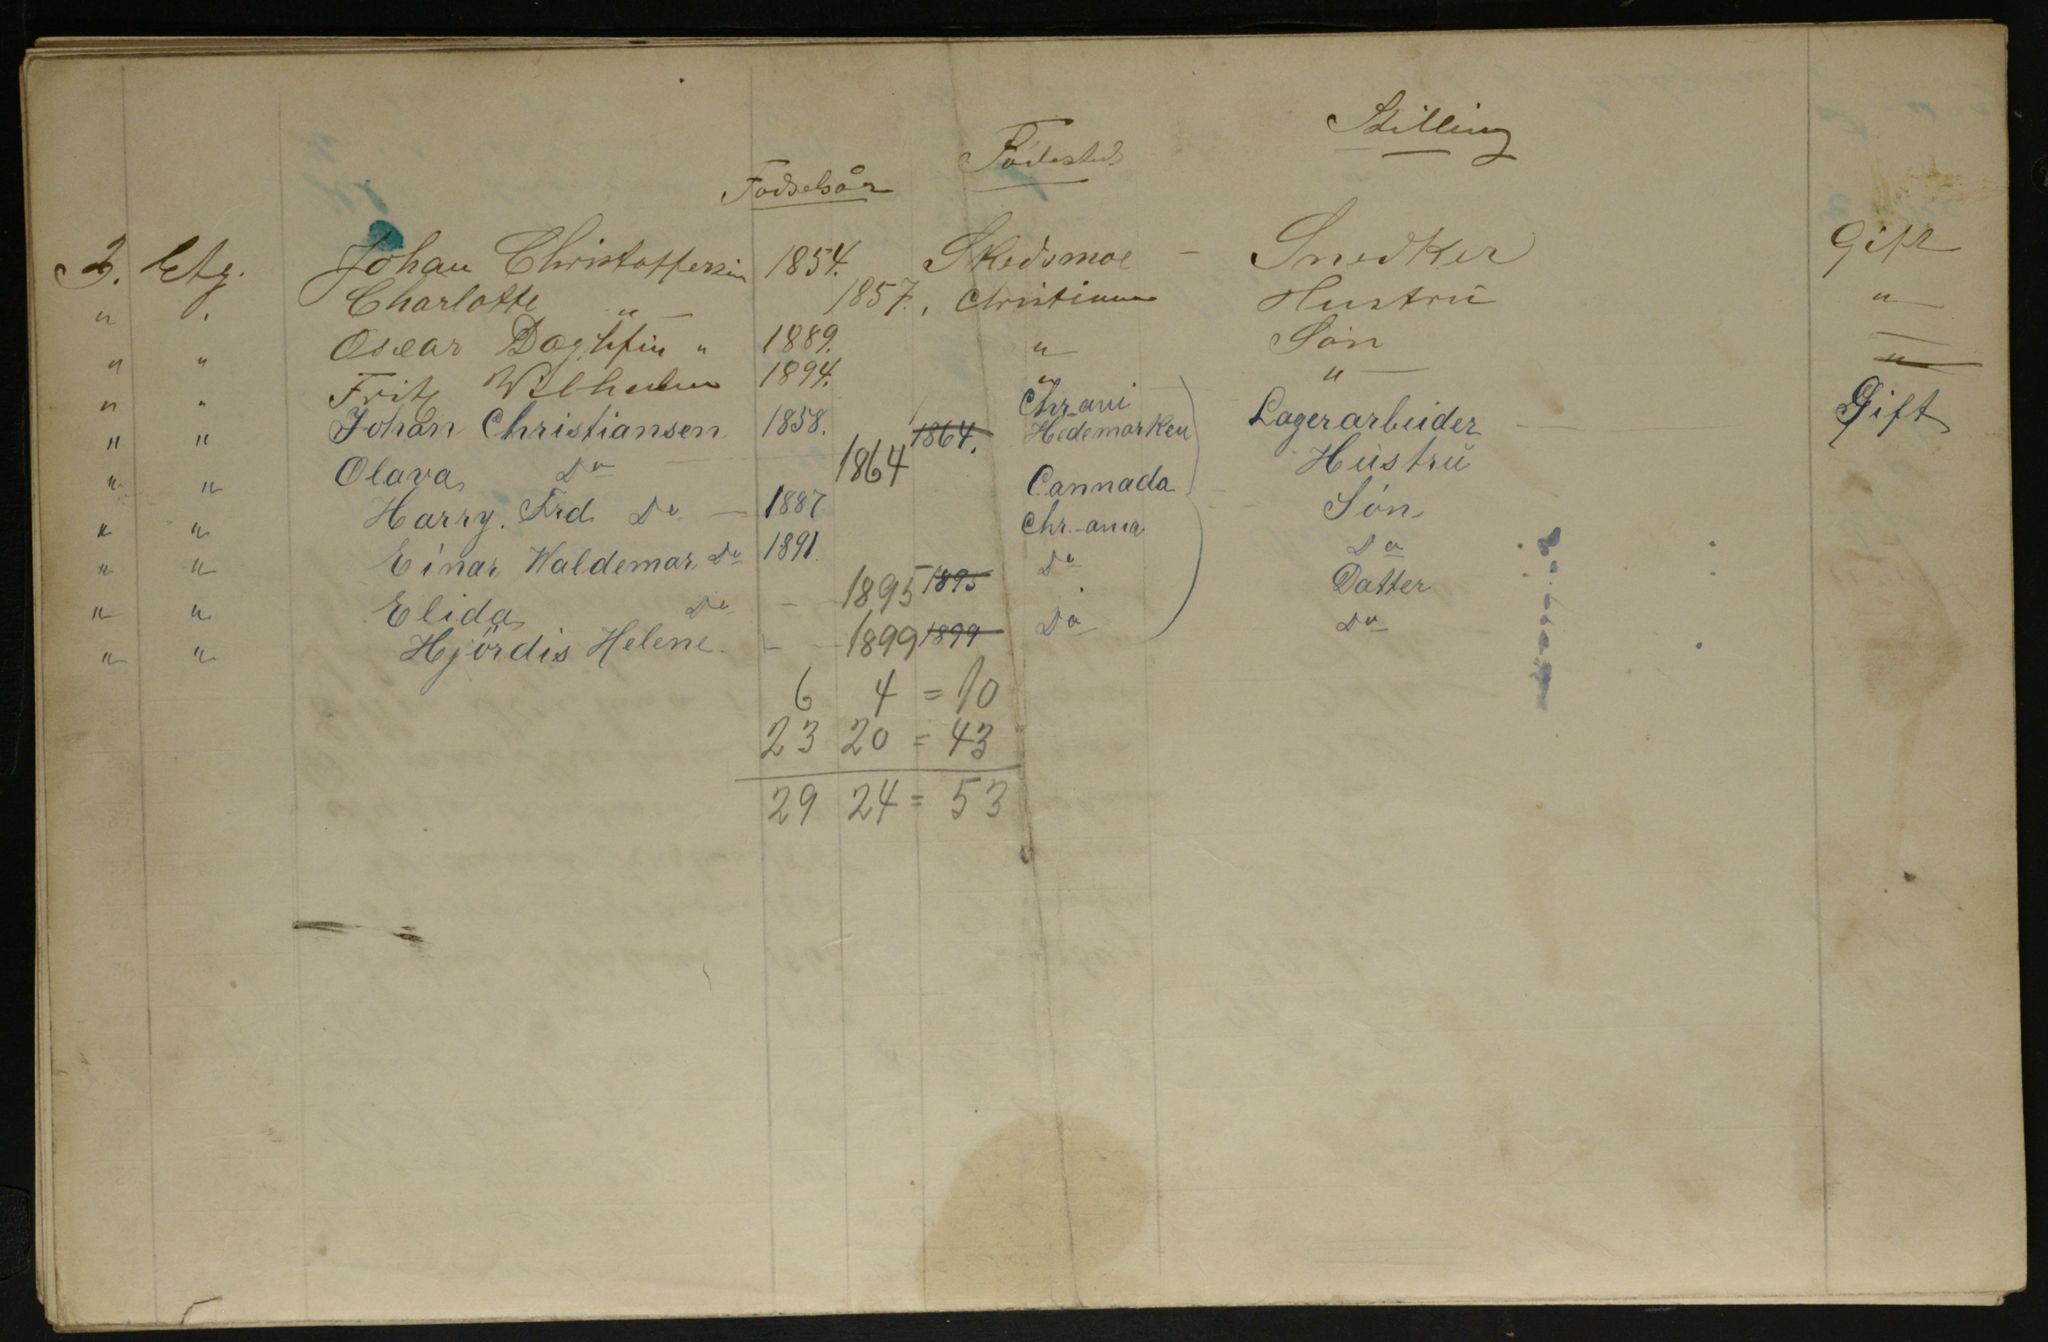 Stilling
Fødested
Fødselsår
3. Etg. Johan Christoffersen 1854. Skedsmoe — Snedker Gift
" " Charlotte " — 1857. Christiania Hustru "
" " Oscar Dagfin " 1889. " Søn "
" " Fritz Wilhelm 1894. " "
" " Johan Christiansen 1858. Chr.ani Lagerarbeider — Gift
" " Olava Do 1864 1864. Hedemarken Hustru
" " Harry. Frd. Do — 1887 Cannada Søn
" " Einar Waldemar Do 1891. Chr.-ania Do
" " Elida Do — 1895 1895 Do Datter
" " Hjördis Helene. — 1899 1899 Do Do
6 4 = 10
23 20 = 43
29 24 = 53